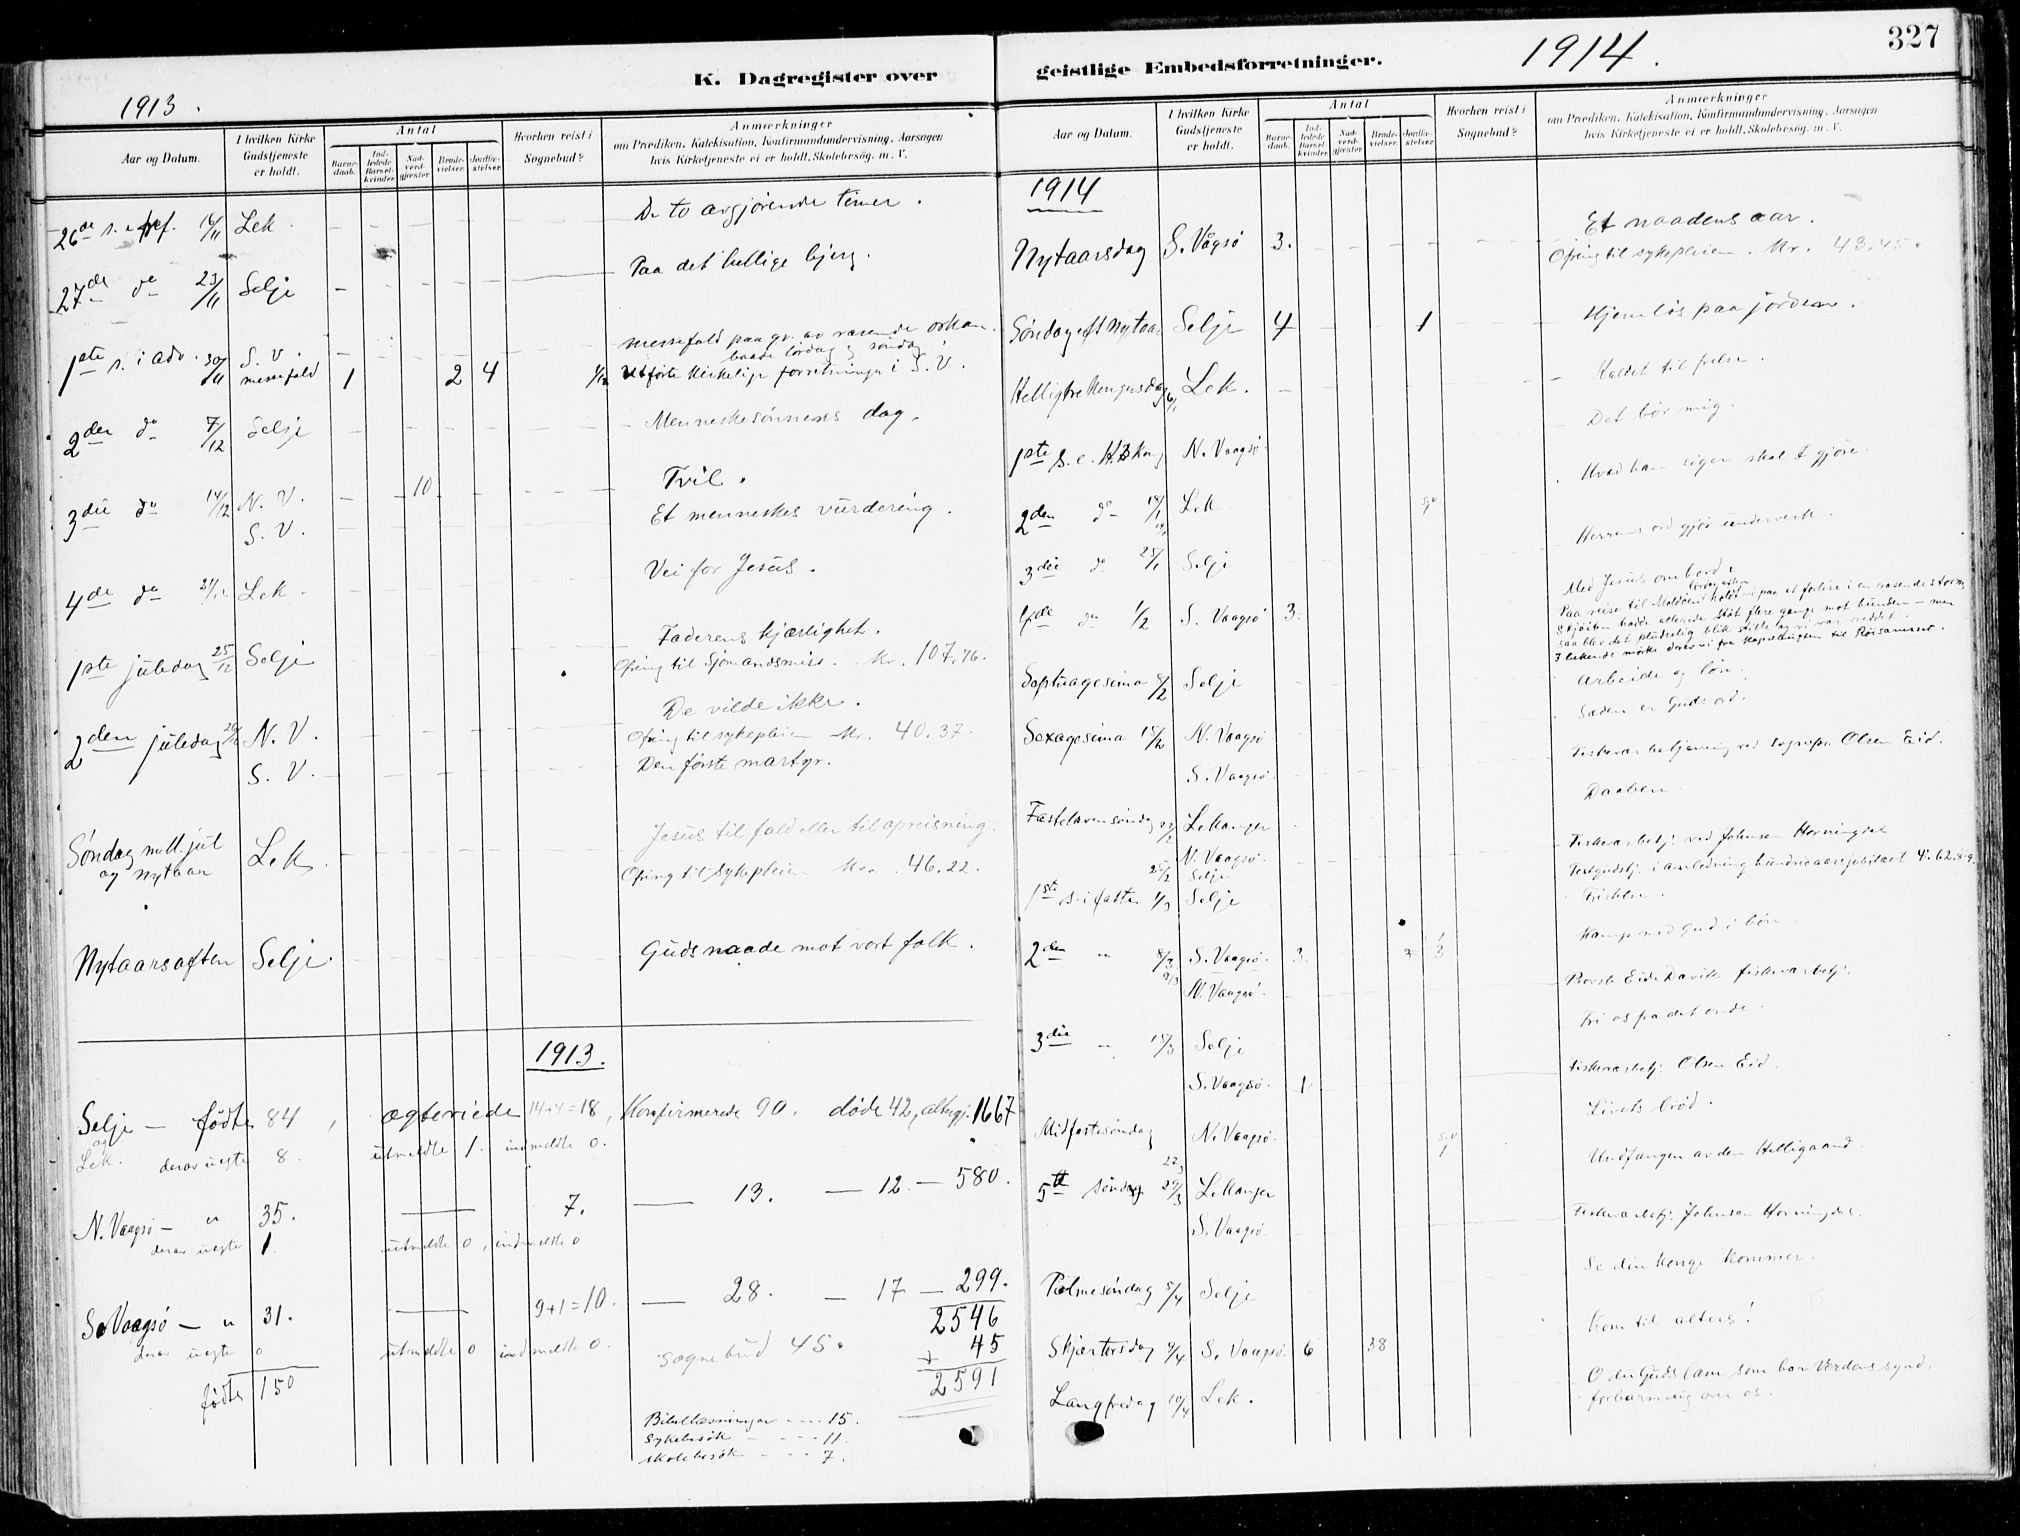 K. Dagregister over
1913.
Aar og Datum.
I hvilken Kirke Gudstjeneste er holdt.
Antal
Barnedaab.
Indledede Barselkvinder.
Nadverdgjæster
Brudevielser.
Jordfæstelser.
Hvorhen reist i Sognebud?
Anmærkninger
om Prædiken, Katekisation, Konfirmandundervisning, Aarsagen
hvis Kirketjeneste ei er holdt, Skolebesøg, m. V.
26de s. e. tref. 16/11 Lek. De to avgjørende timer.
27de do 23/11 Selje Paa det hellige bjerg.
1ste s. i adv. 30/11 S. V. messefald paa gr. av rasende orkan
baade lørdag og søndag
messefald 1 2 4 1/12 Utførte kirkelige forretninger i S. V.
2den do 7/12 Selje Menneskesønnens dag.
3die do 14/12 N. V. 10 Tvil.
S. V. Et menneskes vurdering.
4de do 21/12 Lek. Vei for Jesus.
1ste juledag 25/12 Selje Faderens kjærlighet.
Ofring til Sjömandsmiss. Kr. 107.76.
2den juledag 26/12 N. V. De vilde ikke.
Ofring til sykepleien Kr. 40.37.
S. V. Den første martyr.
Søndag mell. jul Jesus til fald eller til opreisning.
og nytaar Lek. Ofring til sykepleien Kr. 46.22.
Nytaarsaften Selje. Guds naade mot vort folk.
1913.
Selje — fødte 84, ægteviede 14+4=18, Konfirmerede 90. døde 42, altergj. 1667
og Lek. derav uegte 8. utmeldte 1. indmeldte 0.
N. Vaagsø — " 35. 7. — 13. — 12 — 580.
derav uegte 1. utmeldte 0, indmeldte 0
S. Vaagsø — " 31. 9+1=10. — 28. — 17 — 299.
2546
derav uegte 0 utmeldte 0 indmeldte 0. sognebud 45. + 45
fødte 150 2591
Bibellæsninger 15.
Sykebesøk 11.
Skolebesøk 7.
geistlige Embedsforretninger.
1914.
327
Aar og Datum.
I hvilken Kirke Gudstjeneste er holdt.
Antal
Barnedaab.
Indledede Barselkvinder.
Nadverdgjæster
Brudevielser.
Jordfæstelser.
Hvorhen reist i Sognebud?
Anmærkninger
om Prædiken, Katekisation, Konfirmandundervisning, Aarsagen
hvis Kirketjeneste ei er holdt, Skolebesøg, m. V.
1914
Nytaarsdag S. Vågsø 3. Et naadens aar.
Ofring til sykepleien. Kr. 43.45.
Søndag eft nytaar Selje 4 1 Hjemløs paa jorden.
Hellig tre Kongersdag 6/1 Lek. Kaldet til frelse.
1ste s. e. H. 3 Kong N. Vaagsø. Det bør mig.
2den do 18/1 Lek Hvad han siger skal I gjøre.
3die do 25/1 Selje Herrens ord gjør underverk.
4de do 1/2 S. Vaagsø 3. Med Jesus ombord.
Paa reise til Moldøen holdt vi paa at forlise i en rasende storm,
Skjøiten hadde allerede støt flere gange mot bunden — men
saa blev det pludselig blik stille og vi var reddet.
Septuagesima 8/2 Selje Arbeide og løn.
Sexagesima 15/2 N. Vaagsø Sæden er Guds ord.
S. Vaagsø. Fiskerarbetjening ved sognepr. Olsen Eid.
Fastelavensøndag 22/2 Lekanger Daaben.
N. Vaagsø. Fiskerarbetj. ved Johnsen Horningdal
25/2 Selje Festgudstj. i anledning hundreaarsjubilæet
1ste s. i faste 1/3 Selje Fristelse.
2den " 8/3 S. Vaagsø. 3. Kamp med Gud i bøn
N. Vaagsø. Provst Eide Davik fiskerarbetj.
3die " 15/3 Selje Fri os fra det onde.
S. Vaagsø. 1 Fiskerarbetj. Olsen Eid.
Midfastesøndag N. Vaagsø. Livets brød.
5te søndag 29/3 Lekanger Undfangen av den Helligaand.
S. Vaagsø. Fiskerarbetj. Johnsen Horningdal.
Palmesøndag 5/4 Selje Se din konge kommer.
Skjærtorsdag 9/4 S. Vaagsø. 6 38 Kom til alters!
Langfredag 10/4 Lek. O du Guds lam som bar Verdens synd,
forbarm dig over os.